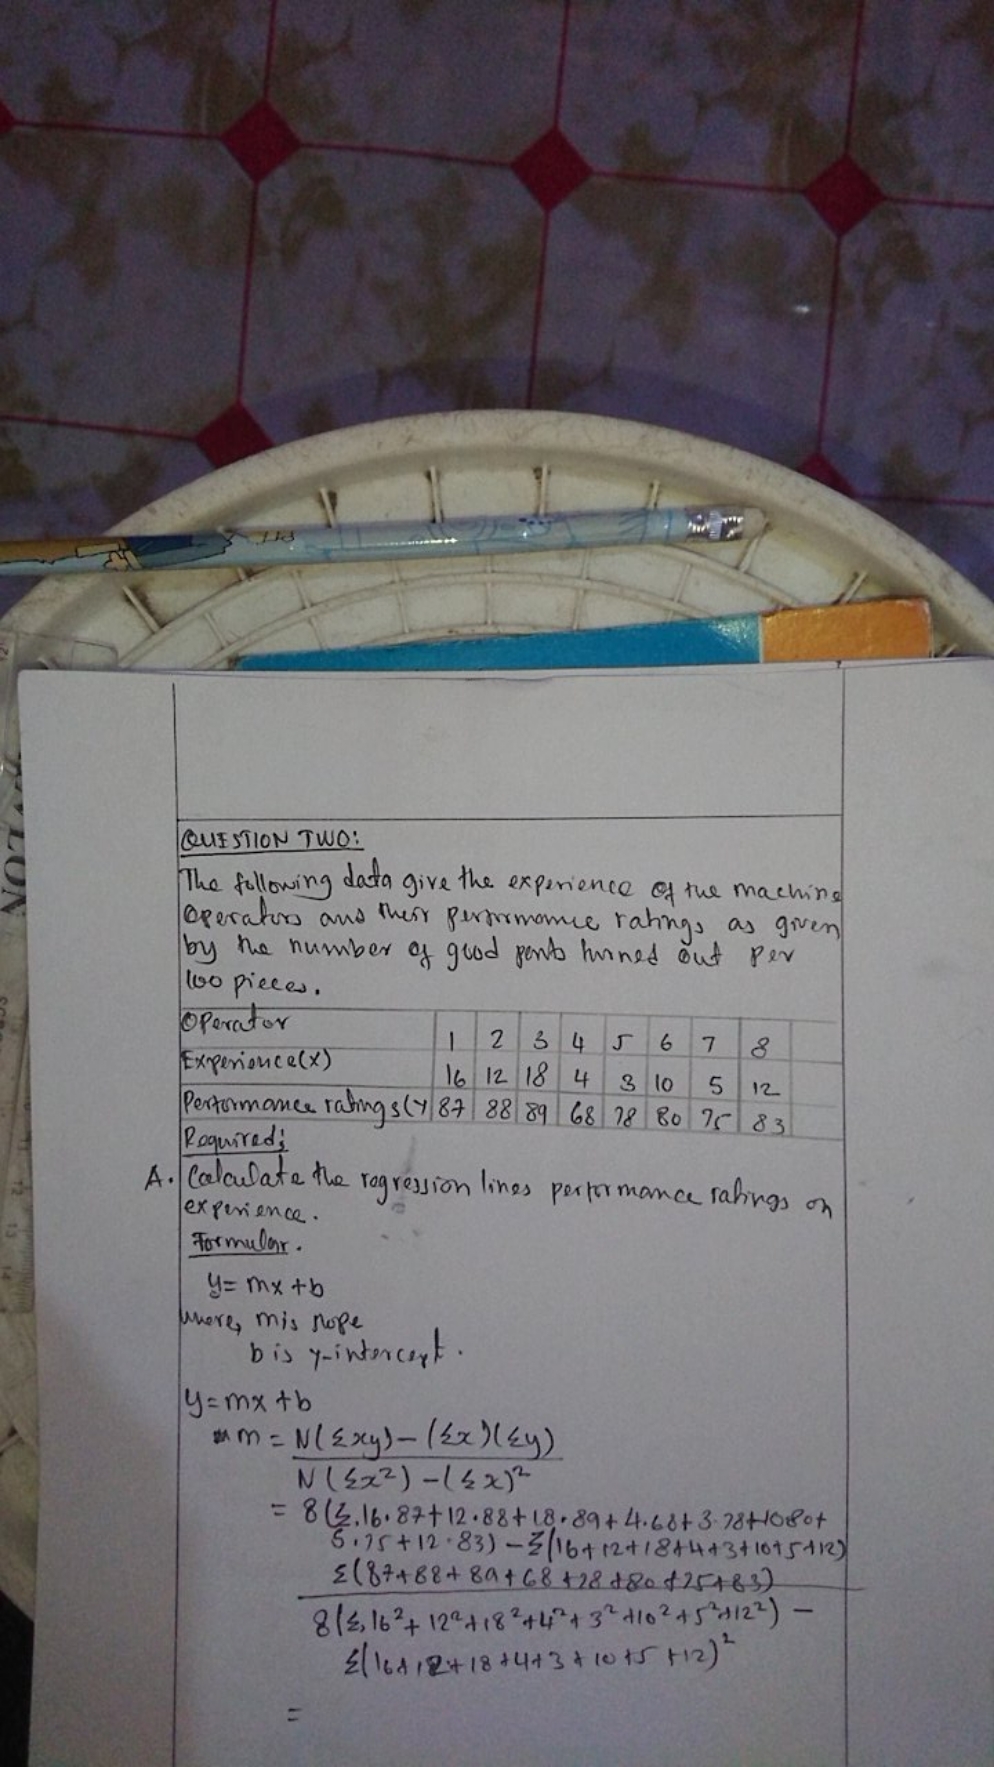 QUESTION TWO:
The following data give the experience of the machine
Operators and their performance ratings as given
by the number of good parts turned out per
100 pieces.
Operator 1 2 3 4 5 6 7 8
Experience(x) 16 12 18 4 3 10 5 12
Performance ratings(Y 87 88 89 68 78 80 75 83
Required;
A. Calculate the regression lines performance ratings on
experience.
Formular.
y= mx +b
where, m is slope
b is y-intercept.
y=mx +b
m = N(Σxy)-(Σx)(Σy)
N(Σx²) -(Σx)²
= 8(Σ,16.87+12.88+18.89+4.68+3.78+10.80+
5.75+12.83) -Σ(16+12+18+4+3+10+5+12)
Σ(87+88+89+68+78+80+75+83)
8(Σ,16²+12²+18²+4²+3²+10²+5²+12²) -
Σ(16+12+18+4+3+10+5+12)²
=